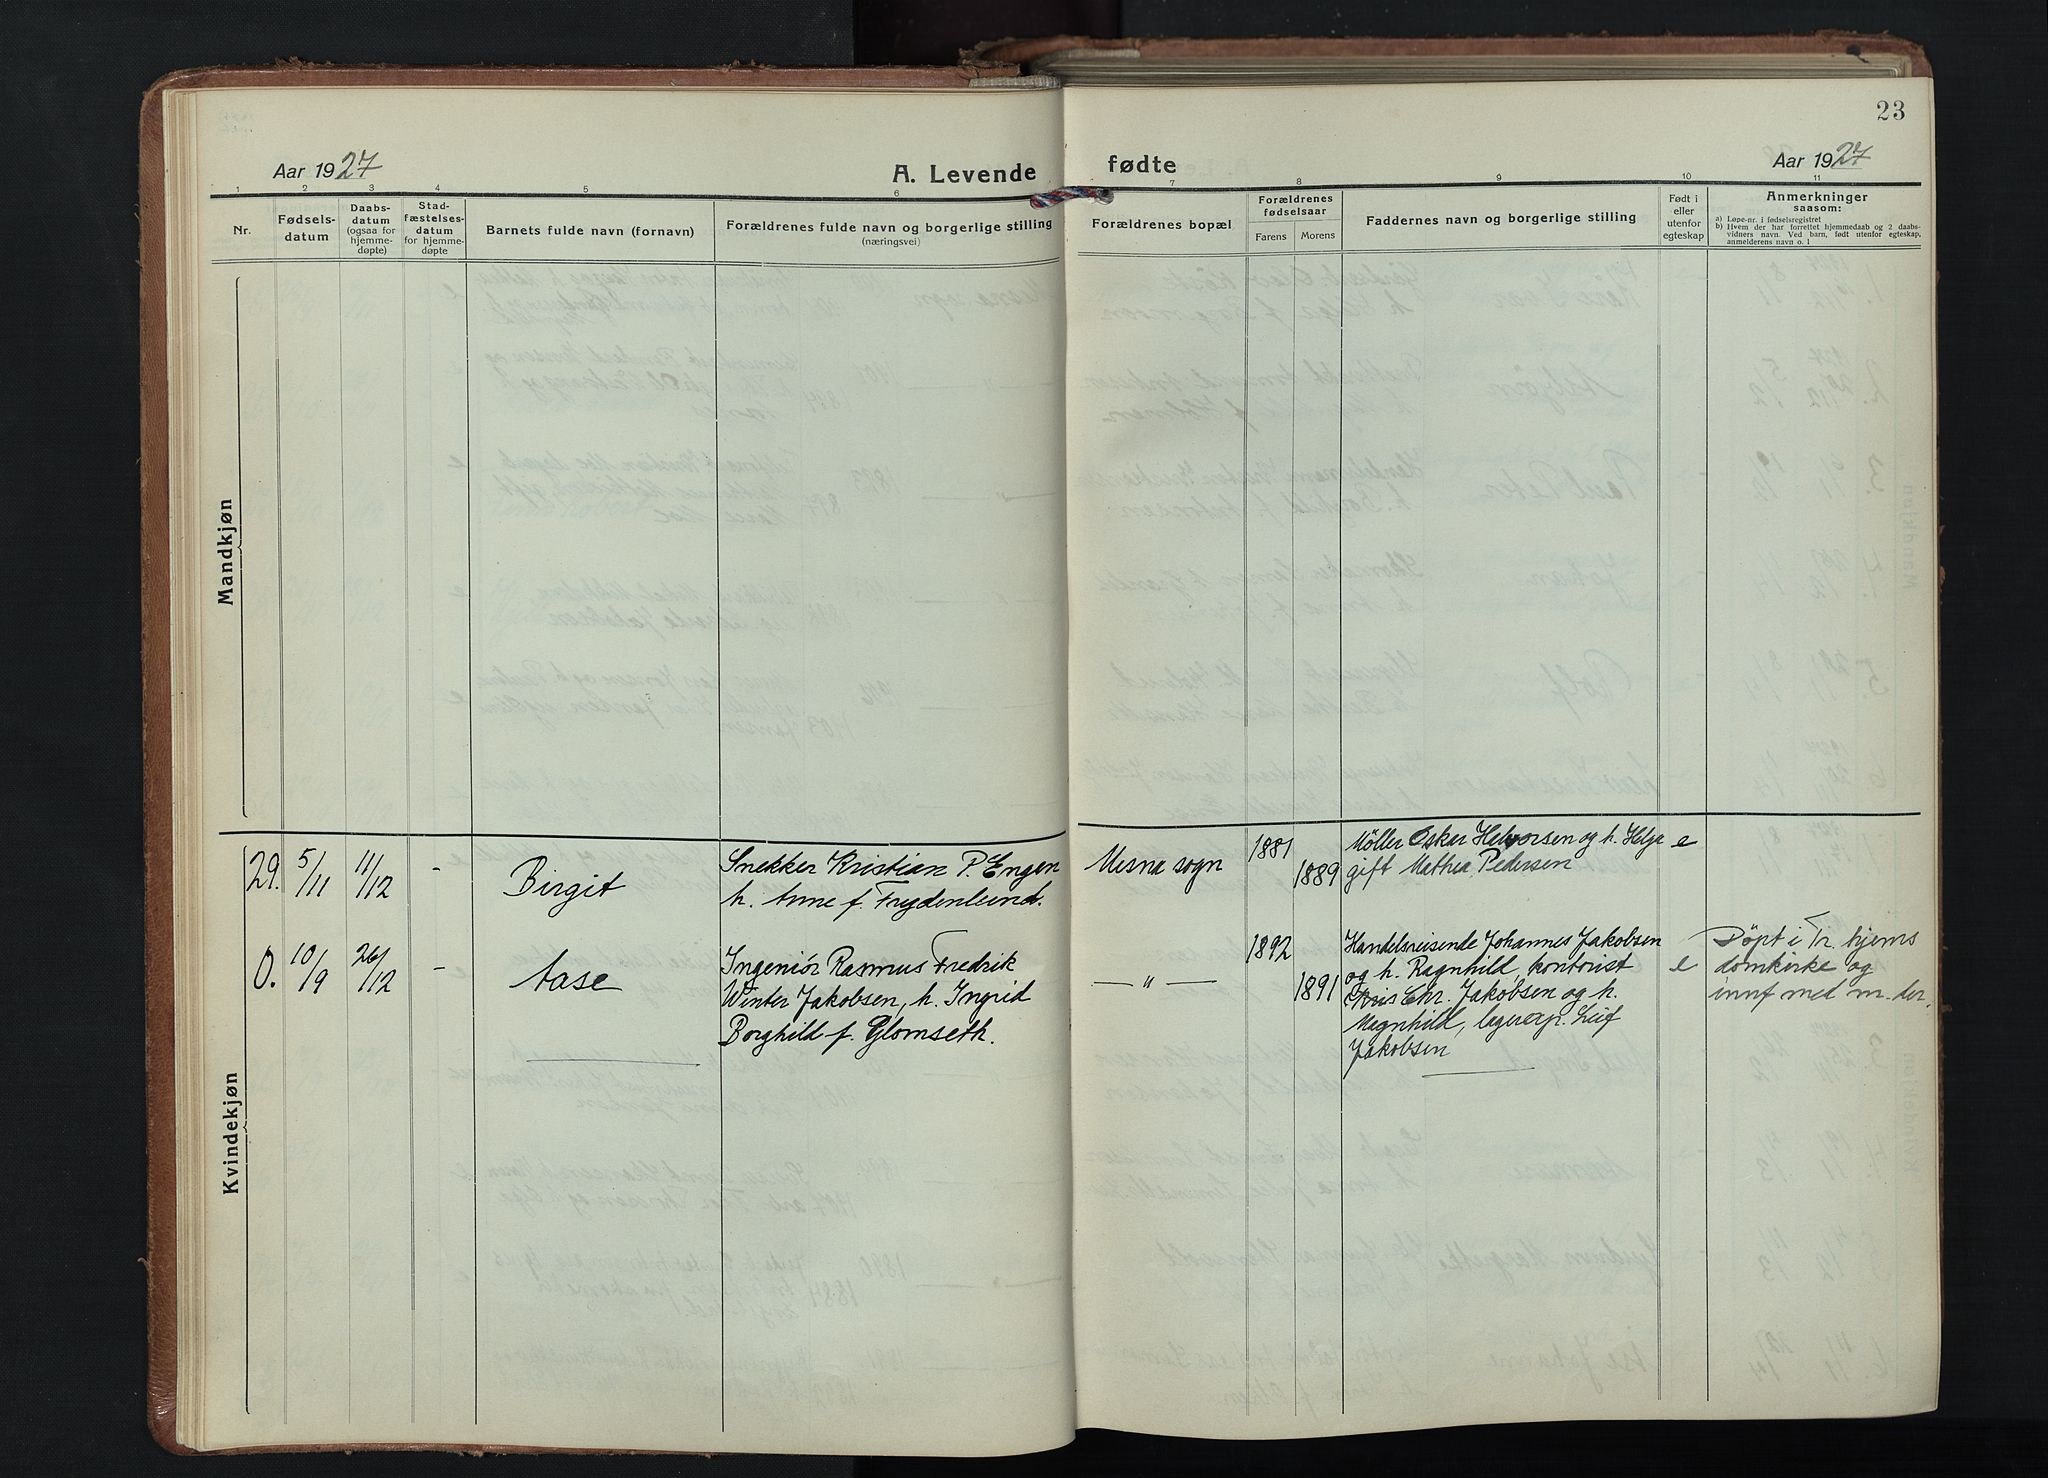 23
Aar 1927
A. Levende
fødte
Aar 1927
1 2 3 4 5 6 7 8 9 10 11
Nr.
Fødsels-
datum
Daabs-
datum
(ogsaa for
hjemme-
døpte)
Stad-
fæstelses-
datum
for hjemme-
døpte
Barnets fulde navn (fornavn)
Forældrenes fulde navn og borgerlige stilling
(næringsvei)
Forældrenes bopæl
Forældrenes
fødselsaar
Farens
Morens
Faddernes navn og borgerlige stilling
Født i
eller
utenfor
egteskap
Anmerkninger
saasom:
a) Løpe-nr. i fødselsregistret
b) Hvem der har forrettet hjemmedaab og 2 daabs-
vidners navn. Ved barn, født utenfor egteskap,
anmelderens navn o. l
Mandkjøn
Kvindekjøn
29. 5/11 11/12 - Birgit
Snekker Kristian P. Engen
h. Anne f. Frydenlund.
Mesna sogn
1881
1889
Møller Oskar Helvorsen og h. Helga e
gift Mathea Pedersen
0. 10/9 26/12 - Aase
Ingeniør Rasmus Fredrik
Winter Jakobsen, h. Ingrid
Borghild f. Glomseth.
— " —
1892
1891
Handelsreisende Johannes Jakobsen e
og h. Ragnhild, kontorist e
Chr. Jakobsen og h.
Magnhild, lagerexp. Leif
Jakobsen
Døpt i Tr.hjems
domkirke og
innf med